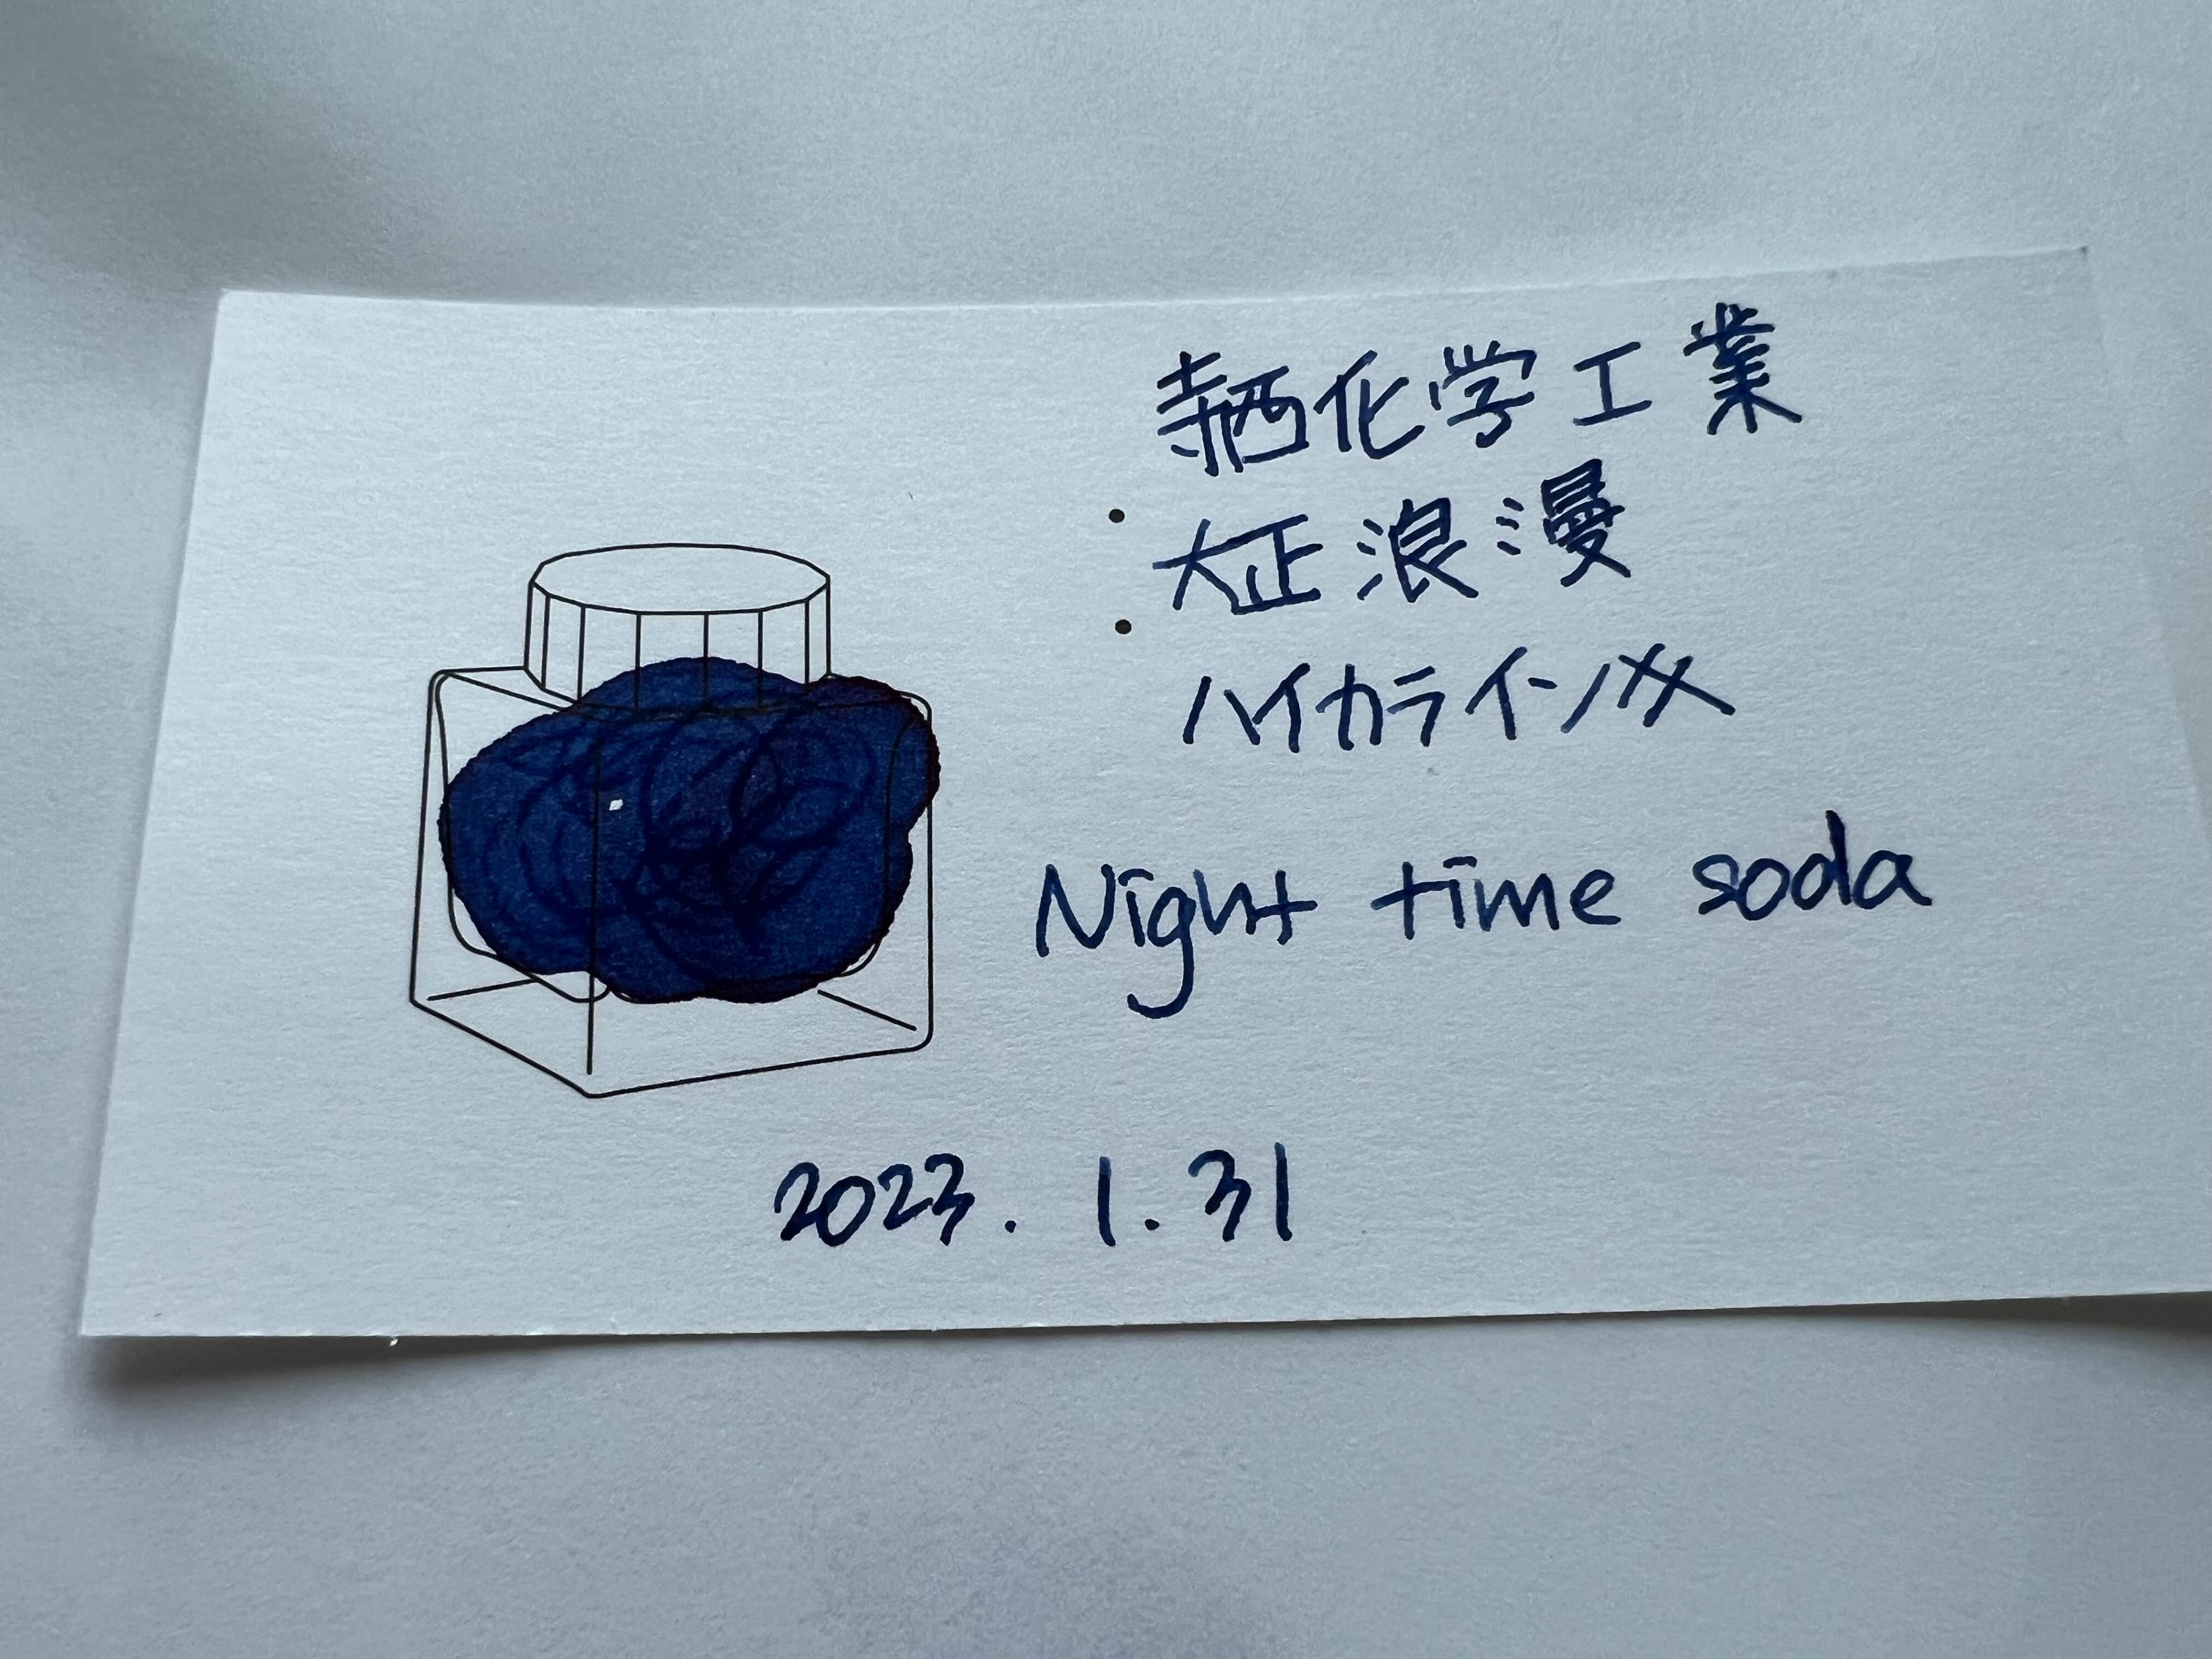 寺西化学工業
大正浪漫
ハイカラインキ
Night time soda
2023.1.31